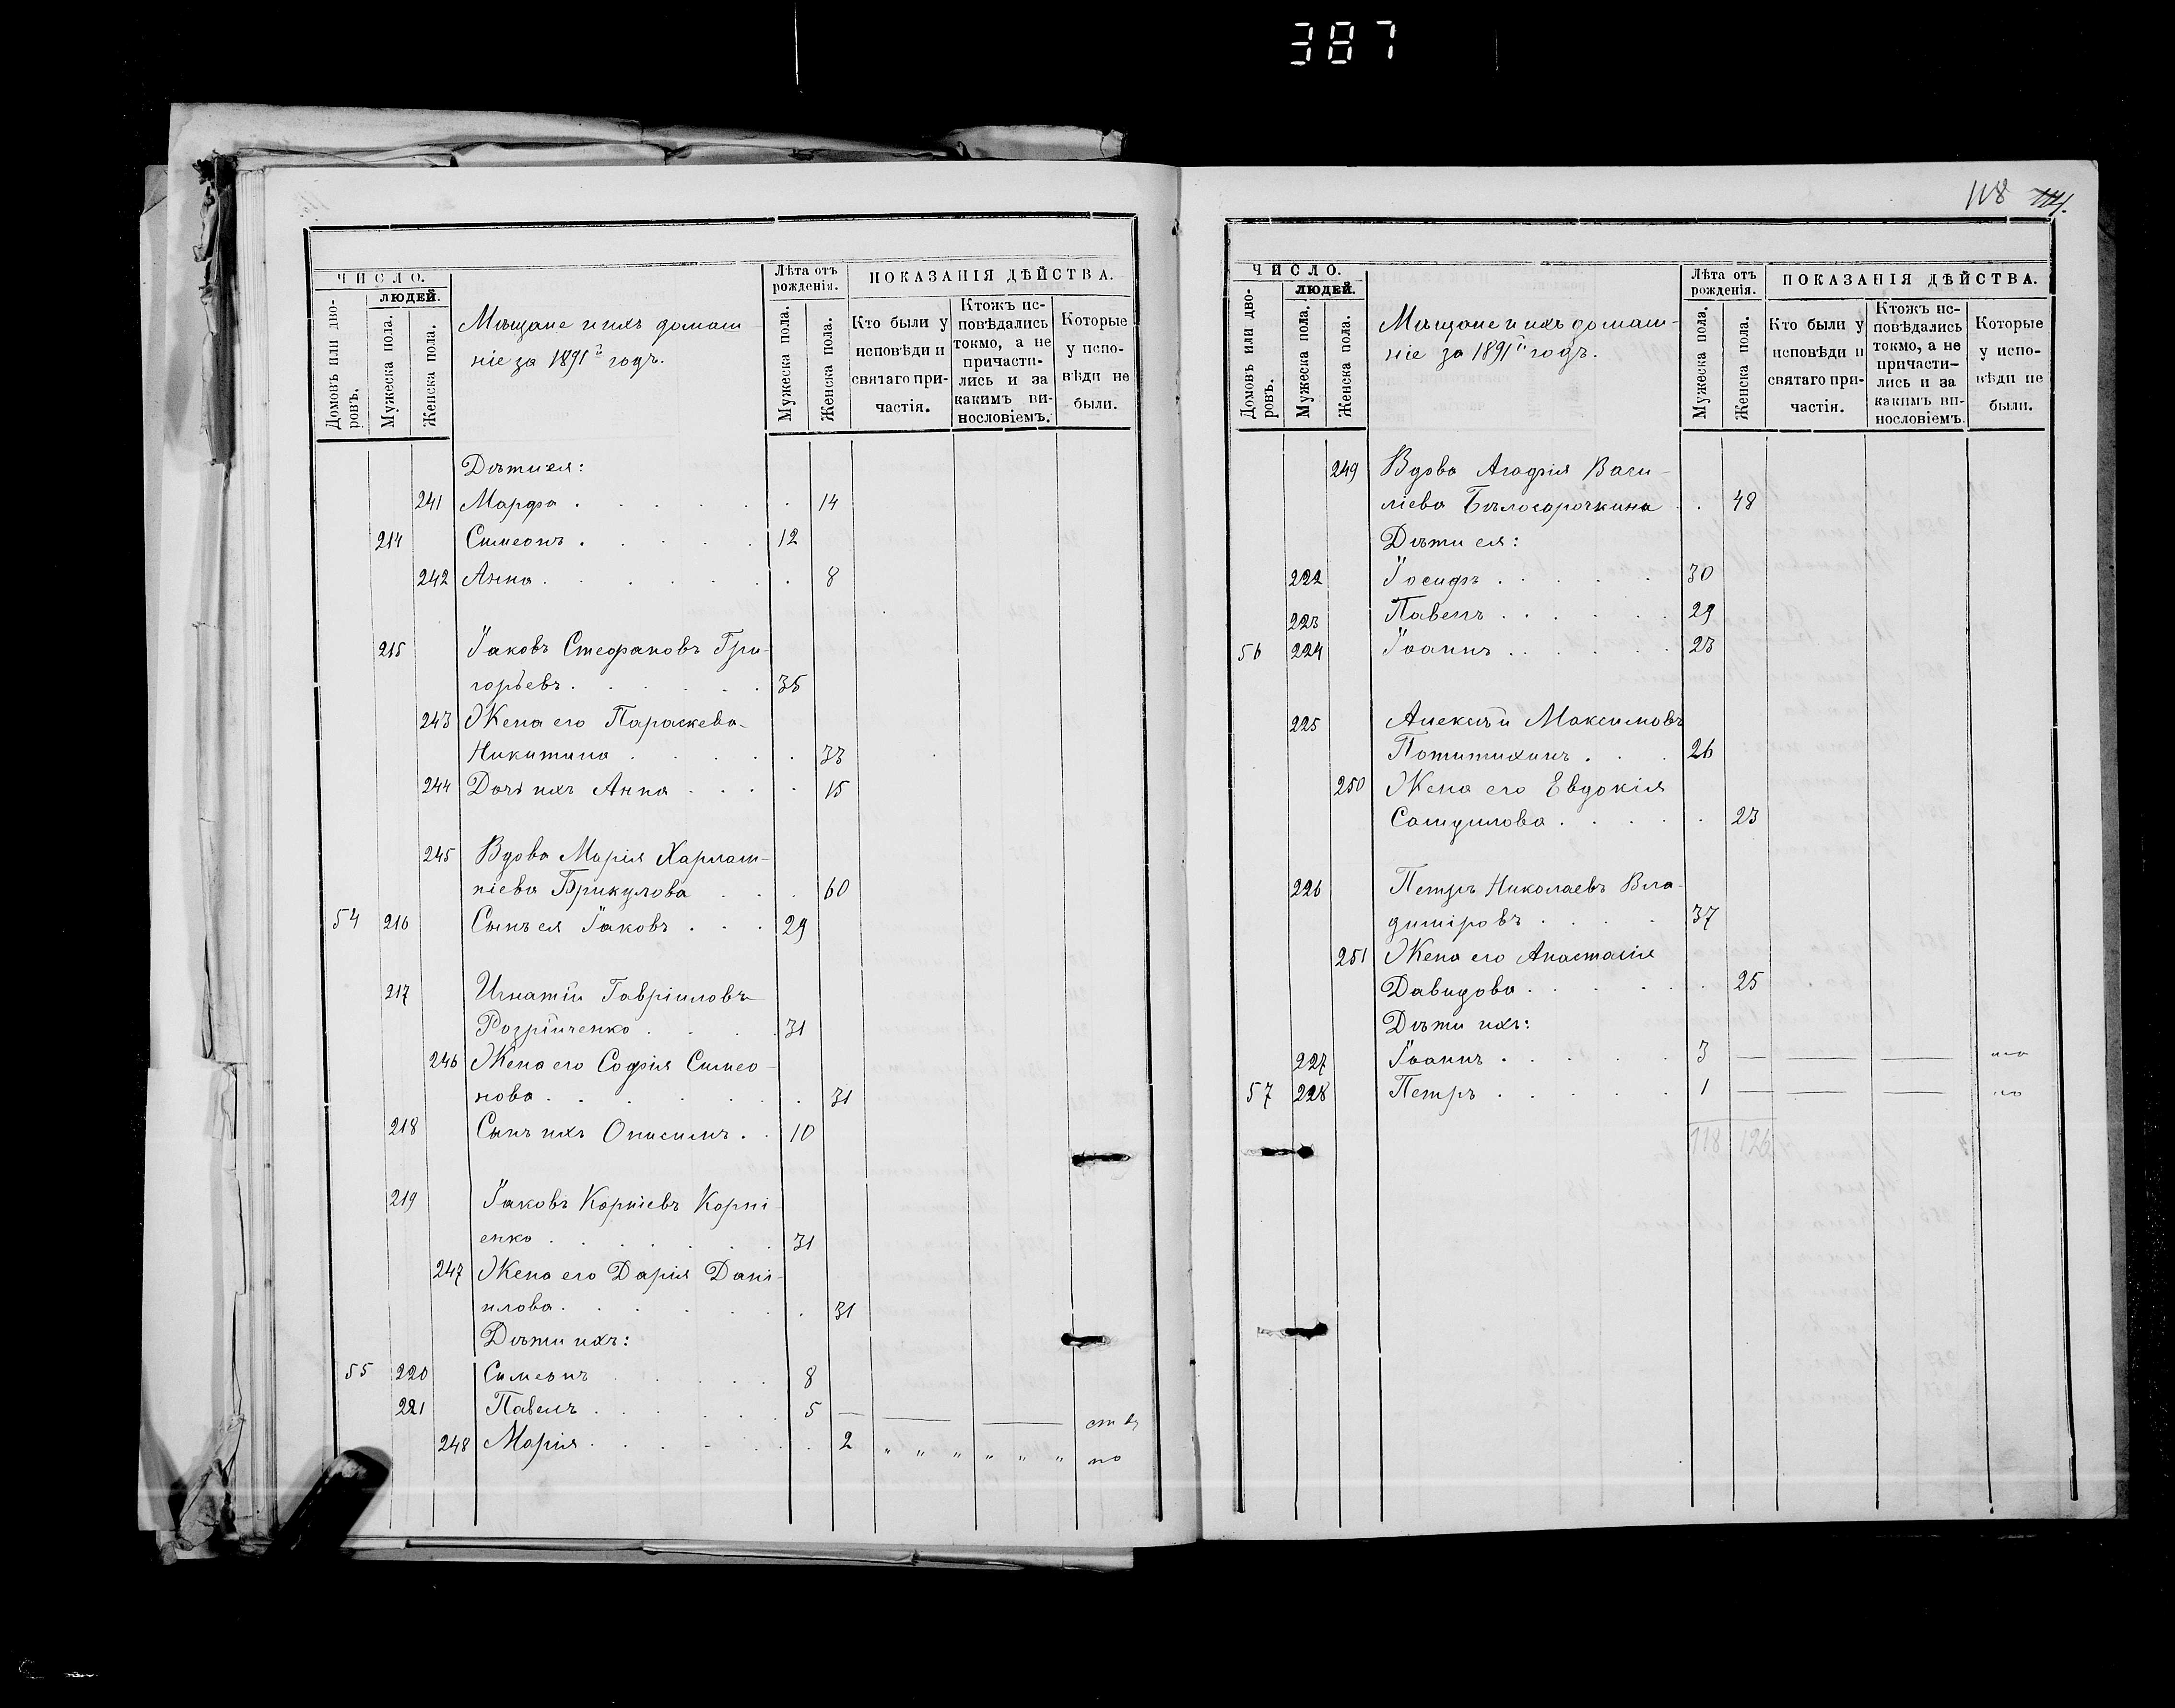 387
ЧИСЛО.
ЛЮДЕЙ.
Домовъ или дворовъ.
Мужеска пола.
Женска пола.
Мѣщане и ихъ домаш
ніе за 1891й годъ.
Лѣта отъ
рожденія.
Мужеска пола.
Женска пола.
ПОКАЗАНІЯ ДѢЙСТВА.
Кто были у
исповѣди и
святаго при-
частія.
Ктожъ ис-
повѣдались
токмо, а не
причасти-
лись и за
какимъ ви-
нословіемъ.
Которые
у испо-
вѣди не
были.
Дѣти ея:
241 Марфа . . . . . . 14
214 Симеонъ . . . . . 12
242 Анна . . . . . . . 8
215 Іаковъ Стефановъ Гри-
горьевъ . . . . . . 35
243 Жена его Параскева
Никитина . . . . . 33
244 Дочь ихъ Анна . . . . 15
245 Вдова Марія Харлам-
піева Брикулова . . . 60
54 216 Сынъ ея Іаковъ . . . 29
217 Игнатій Гавріиловъ
. . . . 31
246 Жена его Софія Симео-
нова . . . . . . . 31
218 Сынъ ихъ Онисимъ . . 10
219 Іаковъ Корніевъ Корні
енко . . . . . . . 31
247 Жена его Дарія Дані-
илова . . . . . . . 31
Дѣти ихъ:
55 220 Симеонъ . . . . . 8
221 Павелъ . . . . . . 5 — — —
248 Марія . . . . . . . 2 „ „ „ „ „ „
118 114.
ЧИСЛО.
ЛЮДЕЙ.
Домовъ или дворовъ.
Мужеска пола.
Женска пола.
Мѣщане и ихъ домаш-
ніе за 1891й годъ.
Лѣта отъ
рожденія.
Мужеска пола.
Женска пола.
ПОКАЗАНІЯ ДѢЙСТВА.
Кто были у
исповѣди и
святаго при-
частія.
Ктож ис-
повѣдались
токмо, а не
причасти-
лись и за
какимъ ви-
нословіемъ.
Которые
у испо-
вѣди не
были.
249 Вдова Агафія Васи-
ліева Бѣлосорочкина . . 48
Дѣти ея:
222 Іосифъ . . . . . 30
223 Павелъ . . . . . . 29
56 224 Іоаннъ . . . . . . 23
225 Алексѣй Максимовъ
Потитихинъ . . . 26
250 Жена его Евдокія
Самуилова . . . . . 23
226 Петръ Николаевъ Вла-
диміровъ . . . . 37
251 Жена его Анастасія
Давидова . . . . . . 25
Дѣти ихъ:
227 Іоаннъ . . . . . 3 — — —
57 228 Петръ . . . . . 1 — — —
118 126